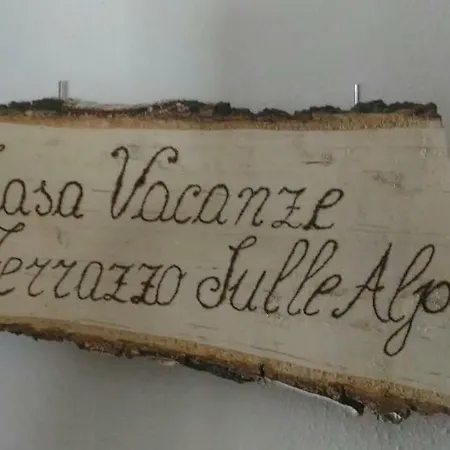 Casa Vacanze
Terrazzo Sulle Alp